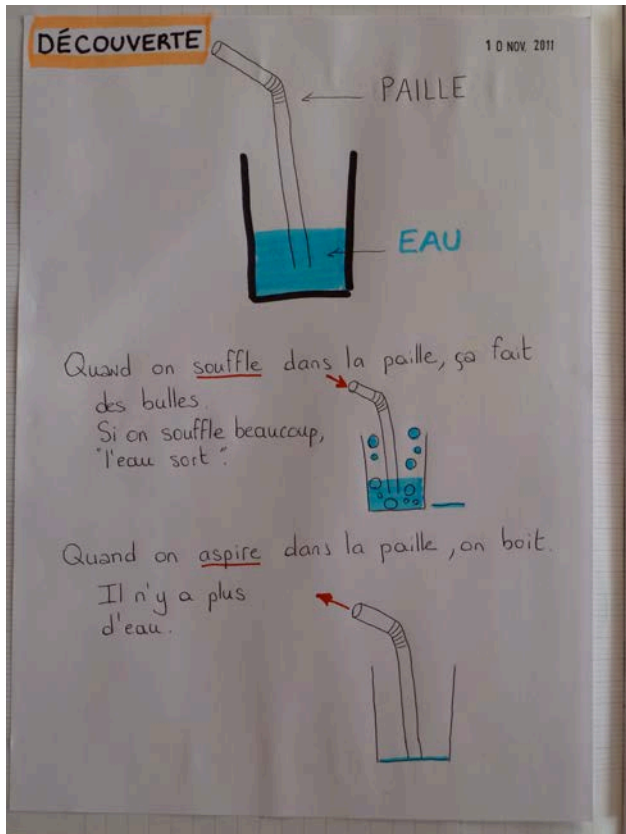 DÉCOUVERTE
10 NOV. 2011
PAILLE
EAU
Quand on souffle dans la paille, ça fait
des bulles.
Si on souffle beaucoup,
"l'eau sort".
Quand on aspire dans la paille, on boit.
Il n'y a plus
d'eau.